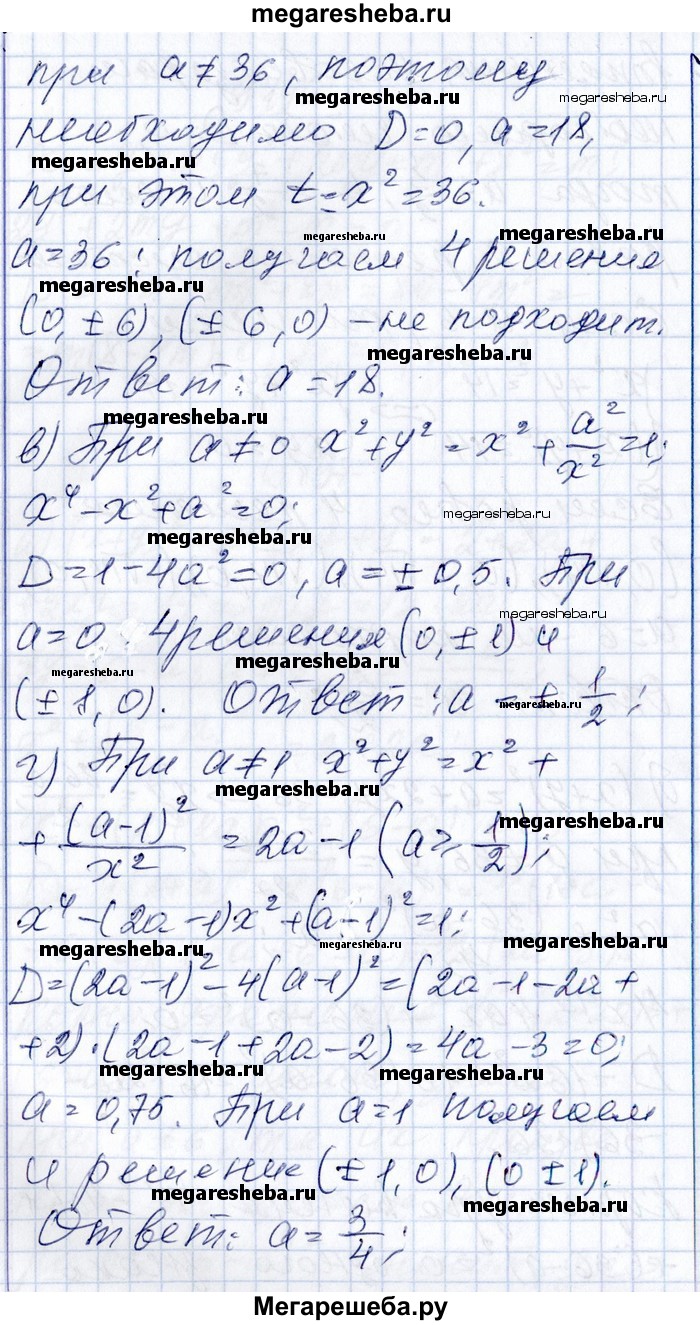 megaresheba.ru
при a≠36, поэтому
megaresheba.ru megaresheba.ru
необходимо D=0, a=18,
megaresheba.ru
при этом t=x²=36.
megaresheba.ru megaresheba.ru
a=36: получаем 4 решения
megaresheba.ru
(0, ±6), (±6, 0) – не подходит.
megaresheba.ru
Ответ: a=18.
megaresheba.ru
в) При a≠0 x²+y²=x²+a²/x²=1;
x⁴-x²+a²=0;
megaresheba.ru megaresheba.ru
D=1-4a²=0, a=±0,5. При
megaresheba.ru
a=0 4 решения (0, ±1) и
megaresheba.ru megaresheba.ru
(±1, 0). Ответ: a=±1/2;
megaresheba.ru
г) При a≠1 x²+y²=x²+
megaresheba.ru
+(a-1)²/x²=2a-1 (a≥1/2);
megaresheba.ru
x⁴-(2a-1)x²+(a-1)²=1;
megaresheba.ru megaresheba.ru megaresheba.ru
D=(2a-1)²-4(a-1)²=(2a-1-2a+
+2)·(2a-1+2a-2)=4a-3=0;
megaresheba.ru megaresheba.ru
a=0,75. При a=1 получаем
и решение (±1, 0), (0 ±1).
megaresheba.ru megaresheba.ru
Ответ: a=3/4;
Мегарешеба.ру